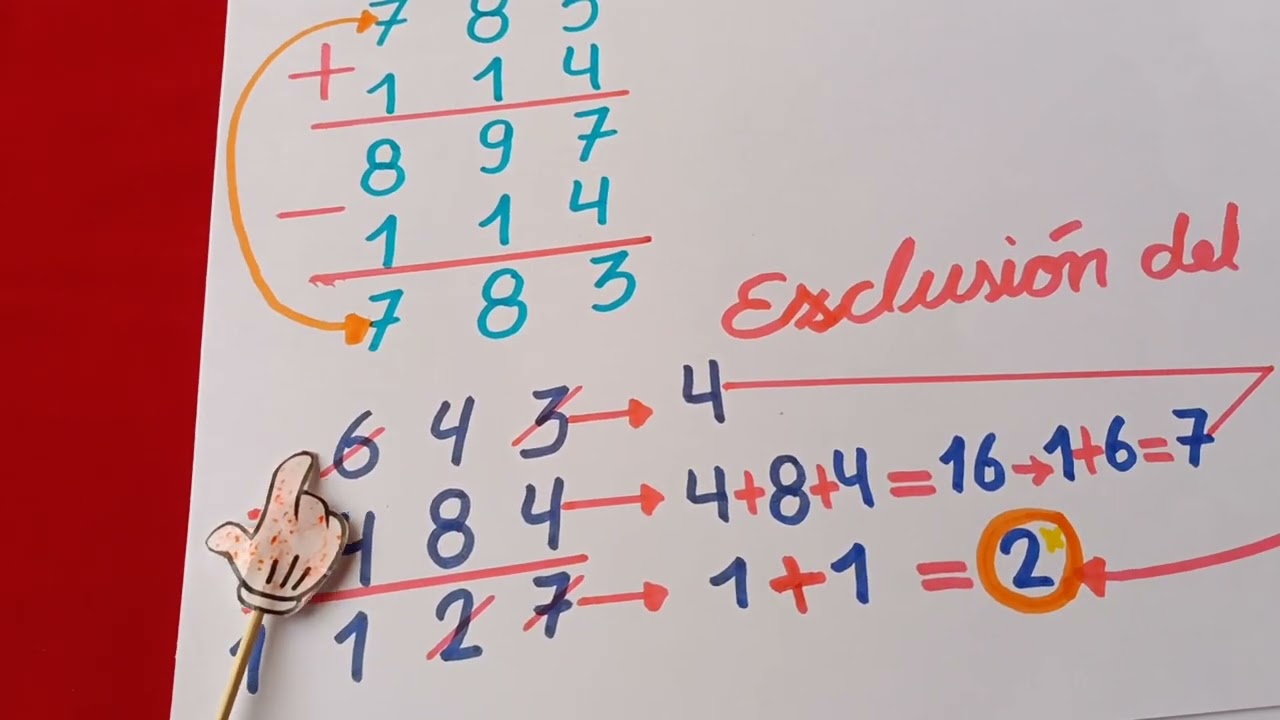 7 8 3
+ 1 1 4
8 9 7
− 1 1 4
7 8 3
Exclusión del
6 4 3 → 4
4 8 4 → 4+8+4=16→1+6=7
1 1 2 7 → 1+1=2